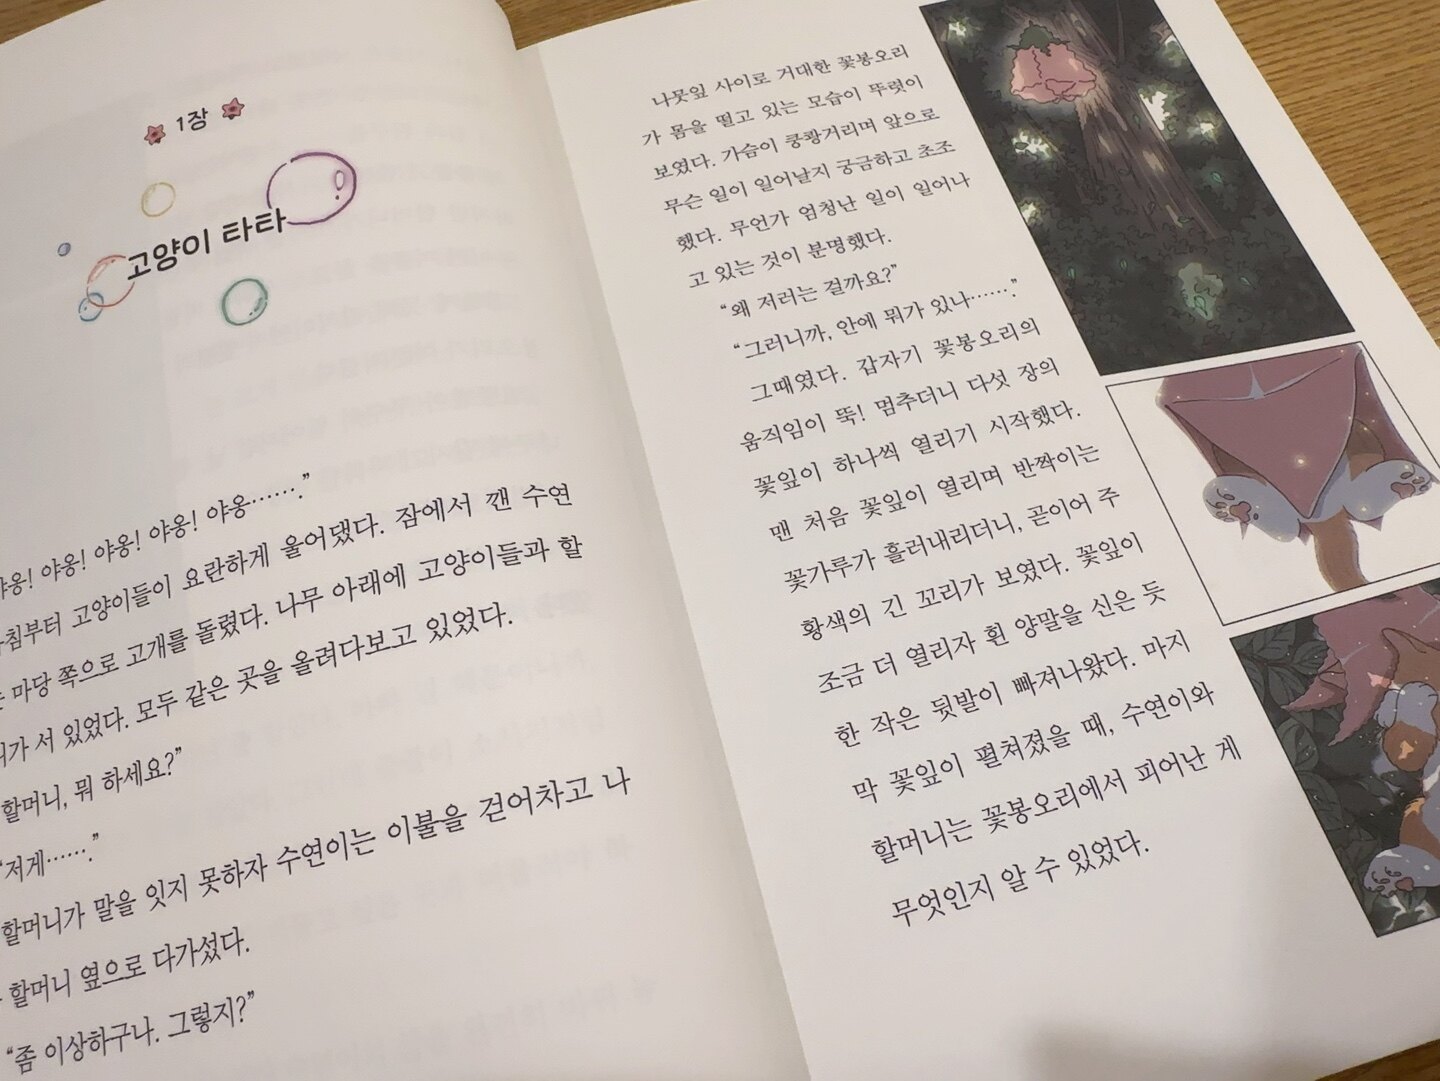 1장
고양이 타타
야옹! 야옹! 야옹! 야옹! 야옹……."
아침부터 고양이들이 요란하게 울어댔다. 잠에서 깬 수연
마당 쪽으로 고개를 돌렸다. 나무 아래에 고양이들과 할
서 있었다. 모두 같은 곳을 올려다보고 있었다.
할머니, 뭐 하세요?"
"저게……."
할머니가 말을 잇지 못하자 수연이는 이불을 걷어차고 나
할머니 옆으로 다가섰다.
"좀 이상하구나. 그렇지?"
나뭇잎 사이로 거대한 꽃봉오리
가 몸을 떨고 있는 모습이 뚜렷이
보였다. 가슴이 쿵쾅거리며 앞으로
무슨 일이 일어날지 궁금하고 초조
했다. 무언가 엄청난 일이 일어나
고 있는 것이 분명했다.
"왜 저러는 걸까요?"
"그러니까, 안에 뭐가 있나……."
그때였다. 갑자기 꽃봉오리의
움직임이 뚝! 멈추더니 다섯 장의
꽃잎이 하나씩 열리기 시작했다.
맨 처음 꽃잎이 열리며 반짝이는
꽃가루가 흘러내리더니, 곧이어 주
황색의 긴 꼬리가 보였다. 꽃잎이
조금 더 열리자 흰 양말을 신은 듯
한 작은 뒷발이 빠져나왔다. 마지
막 꽃잎이 펼쳐졌을 때, 수연이와
할머니는 꽃봉오리에서 피어난 게
무엇인지 알 수 있었다.